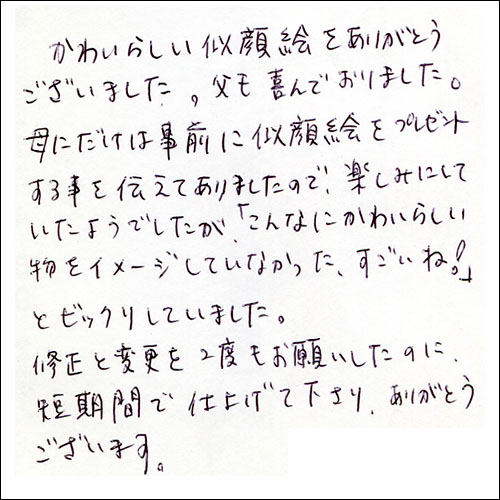 かわいらしい似顔絵をありがとう
ございました。父も喜んでおりました。
母にだけは事前に似顔絵をプレゼント
する事を伝えてありましたので、楽しみにして
いたようでしたが、「こんなにかわいらしい
物をイメージしていなかった、すごいね!」
とビックリしていました。
修正と変更を2度もお願いしたのに、
短期間で仕上げて下さり、ありがとう
ございます。